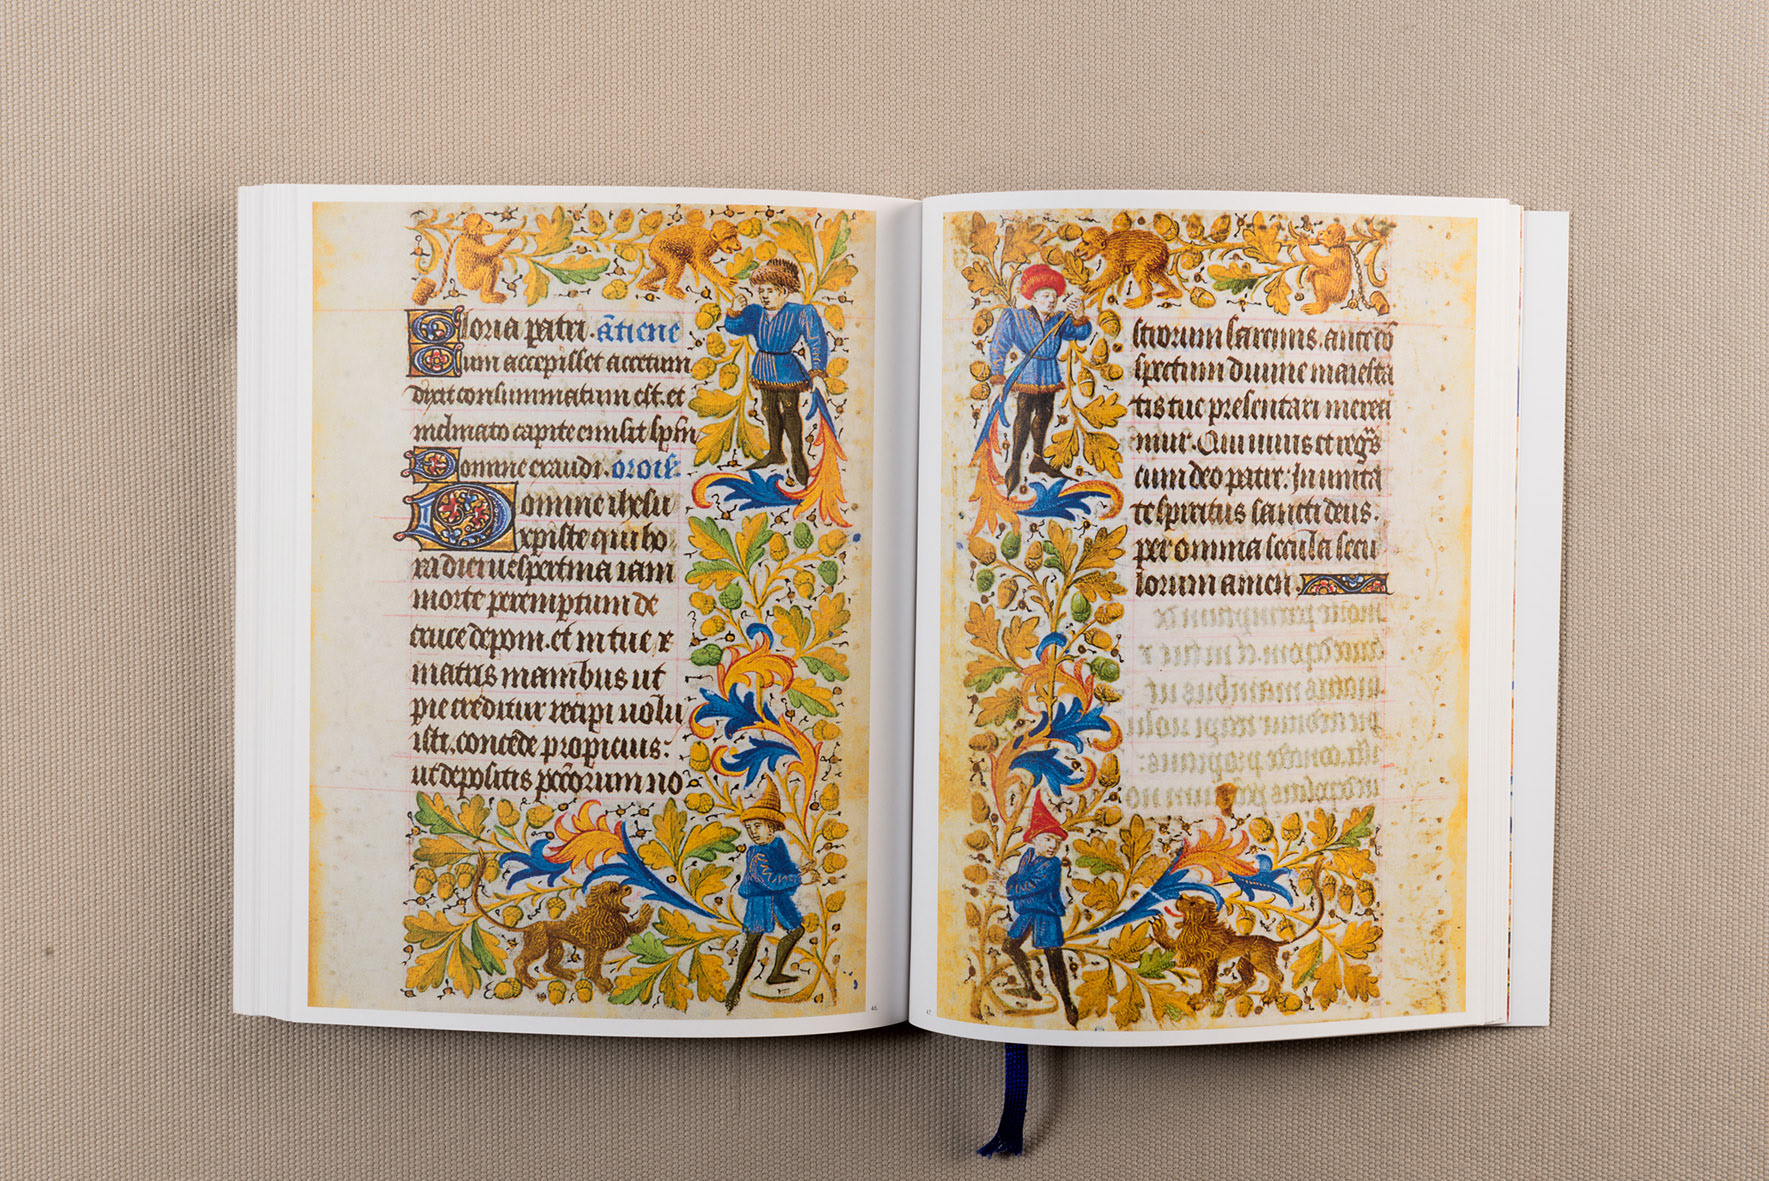 Gloria patri. ātiene
Cum accepisset acetum
dixit consummatum est. et
inclinato capite emisit spm
Domine exaudi. oroīs.
Domine ihesu
xp̄iste qui ho
ra diei uespertina iam
morte peremptum de
cruce deponi. et in tue
matris manibus ut
pie creditur recipi uolu
isti. concede propicius:
ut depositis pccōrum no
46
strorum sarcinis. ante
spectum diuine maiesta
tis tue presentari merea
mur. Qui uiuis et regs
cum deo patre: In unita
te spiritus sancti deus.
per omnia secula secu
lorum amen
47